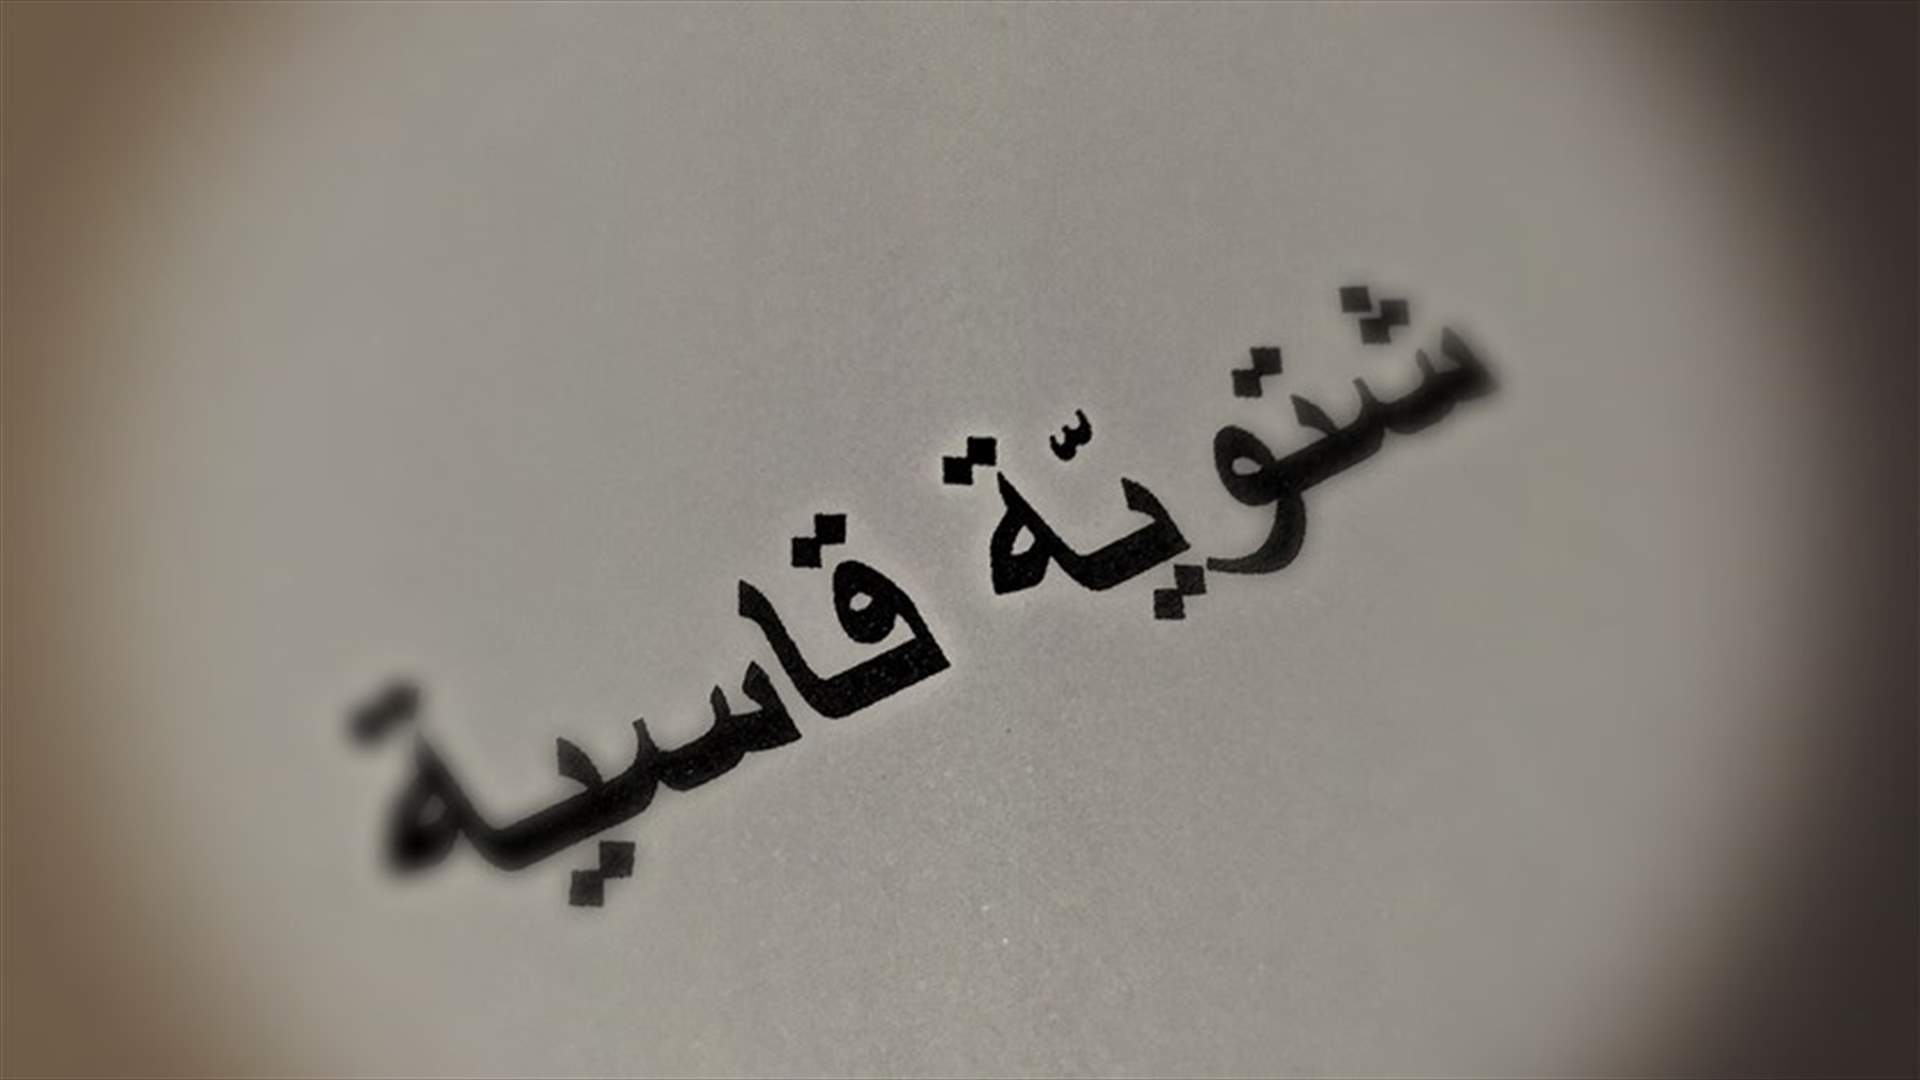 شتويّة قاسية